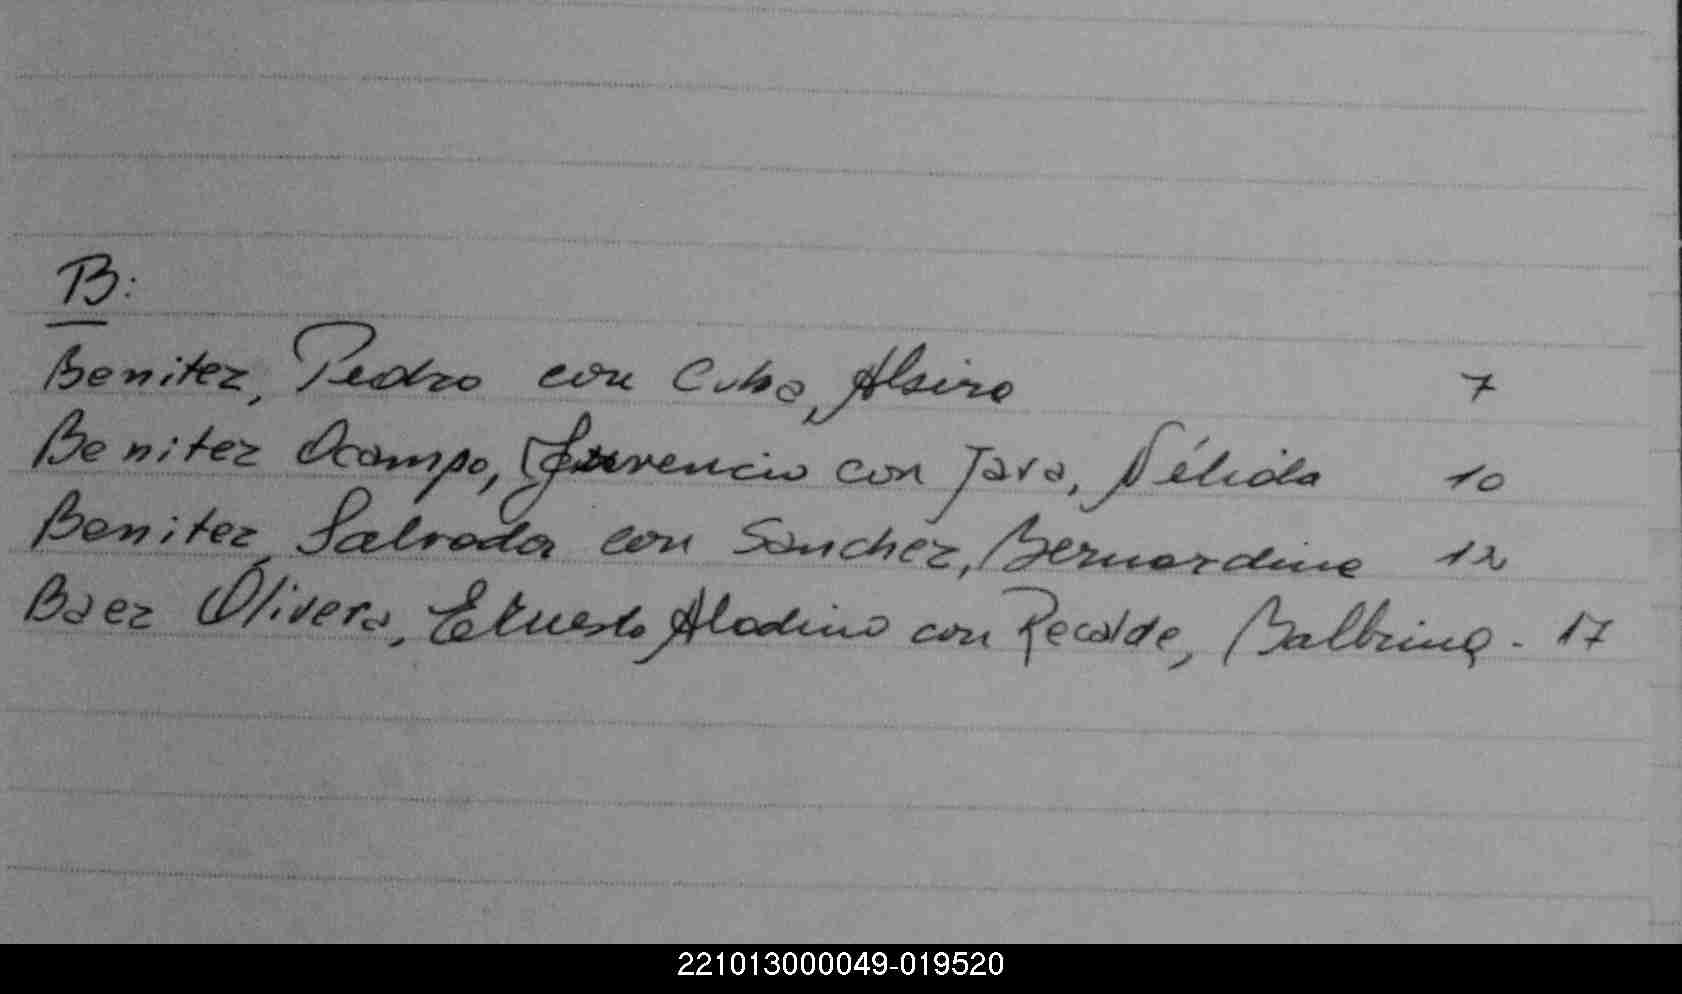 B:
Benitez, Pedro con Cuba, Alsira 7
Benitez Ocampo, Juvencio con Jara, Nélida 10
Benitez, Salvador con Sanchez, Bernardina 12
Baez Olivera, Ernesto Aladino con Recalde, Balbina - 17
221013000049-019520